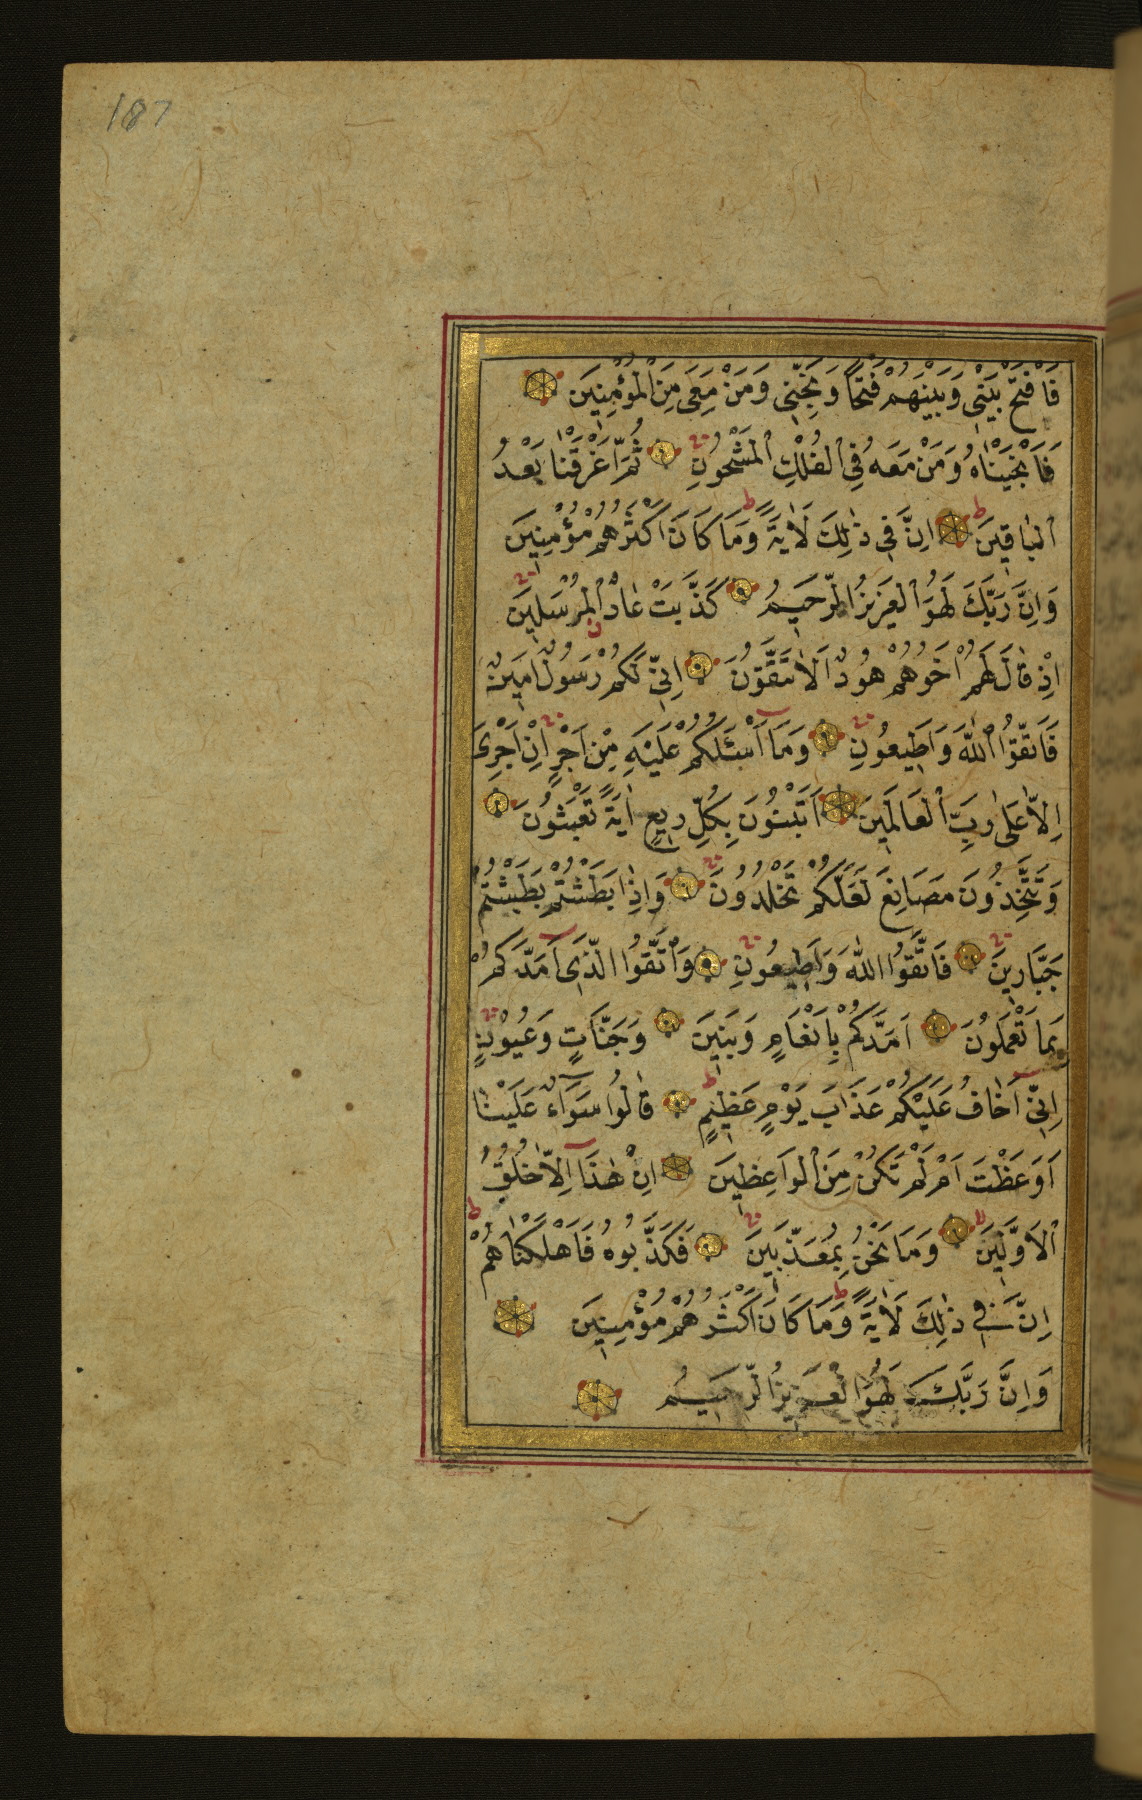 187
فَافْتَحْ بَيْنِي وَبَيْنَهُمْ فَتْحًا وَنَجِّنِي وَمَنْ مَعِيَ مِنَ الْمُؤْمِنِينَ
فَاَنْجَيْنَاهُ وَمَنْ مَعَهُ فِي الْفُلْكِ الْمَشْحُونِ ثُمَّ اَغْرَقْنَا بَعْدُ
الْبَاقِينَ اِنَّ فِي ذٰلِكَ لَاٰيَةً وَمَا كَانَ اَكْثَرُهُمْ مُؤْمِنِينَ
وَاِنَّ رَبَّكَ لَهُوَ الْعَزِيزُ الرَّحِيمُ كَذَّبَتْ عَادٌ الْمُرْسَلِينَ
اِذْ قَالَ لَهُمْ اَخُوهُمْ هُودٌ اَلَا تَتَّقُونَ اِنِّي لَكُمْ رَسُولٌ اَمِينٌ
فَاتَّقُوا اللّٰهَ وَاَطِيعُونِ وَمَا اَسْئَلُكُمْ عَلَيْهِ مِنْ اَجْرٍ اِنْ اَجْرِيَ
اِلَّا عَلٰى رَبِّ الْعَالَمِينَ اَتَبْنُونَ بِكُلِّ رِيعٍ اٰيَةً تَعْبَثُونَ
وَتَتَّخِذُونَ مَصَانِعَ لَعَلَّكُمْ تَخْلُدُونَ وَاِذَا بَطَشْتُمْ بَطَشْتُمْ
جَبَّارِينَ فَاتَّقُوا اللّٰهَ وَاَطِيعُونِ وَاتَّقُوا الَّذِي اَمَدَّكُمْ
بِمَا تَعْمَلُونَ اَمَدَّكُمْ بِاَنْعَامٍ وَبَنِينَ وَجَنَّاتٍ وَعُيُونٍ
اِنِّي اَخَافُ عَلَيْكُمْ عَذَابَ يَوْمٍ عَظِيمٍ قَالُوا سَوَاءٌ عَلَيْنَا
اَوَعَظْتَ اَمْ لَمْ تَكُنْ مِنَ الْوَاعِظِينَ اِنْ هٰذَا اِلَّا خُلُقُ
الْاَوَّلِينَ وَمَا نَحْنُ بِمُعَذَّبِينَ فَكَذَّبُوهُ فَاَهْلَكْنَاهُمْ
اِنَّ فِي ذٰلِكَ لَاٰيَةً وَمَا كَانَ اَكْثَرُهُمْ مُؤْمِنِينَ
وَاِنَّ رَبَّكَ لَهُوَ الْعَزِيزُ الرَّحِيمُ